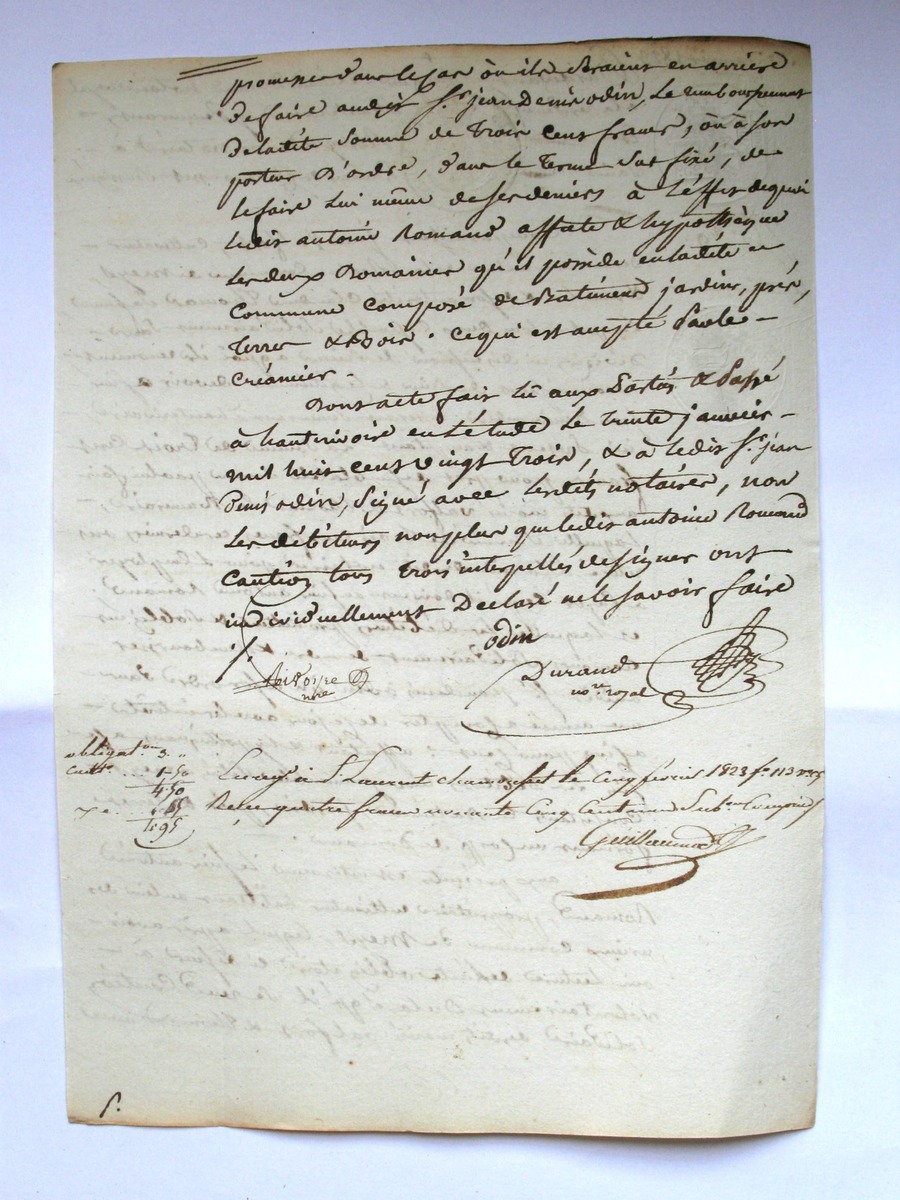 promesse dans le cas où ils seraient en arrière
de faire audit Sr jean Denis odin, Le remboursement
de ladite somme de Trois cent francs, où à son
porteur d'ordre, dans le terme sus fixé, de
le faire lui même de ses deniers à L'effet de quoi
Ledit antoine Romand affecte & hypothèque
Les deux Domaines qu'il possède en ladite
Commune composé de Batiments jardins, prés,
Terres & Bois. ce qui est accepté par le
créancier.
Dont acte fait lû aux parties & passé
à hauterivoire en L'étude Le Trente janvier
mil huit cent vingt Trois, & a ledit Sr jean
Denis odin, signé avec lesdits notaires, non
Les débiteurs non plus que ledit antoine Romand
caution tous trois interpellés de signer ont
individuellement Déclaré ne le savoir faire
odin
Durand
nore royal
nre
obligaton 3. "
cautt. ... 1.50
4.50
xe. . . 45
4.95
Enreg. à St. Laurent chamousset le Cinq février 1823 fo 113
Reçu quatre francs Cinq Centimes Subon Comprise
Guillaumod